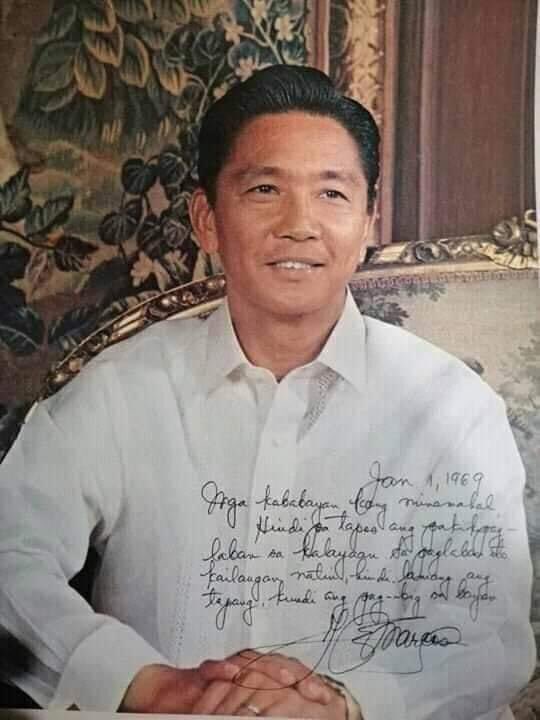 Jan 1, 1969
Mga kababayan kong minamahal,
Hindi pa tapos ang pakikipag-
laban sa kalayaan. Sa paglaban ito
kailangan natin, hindi lamang ang
tapang, kundi ang pag-ibig sa bayan
F E Marcos